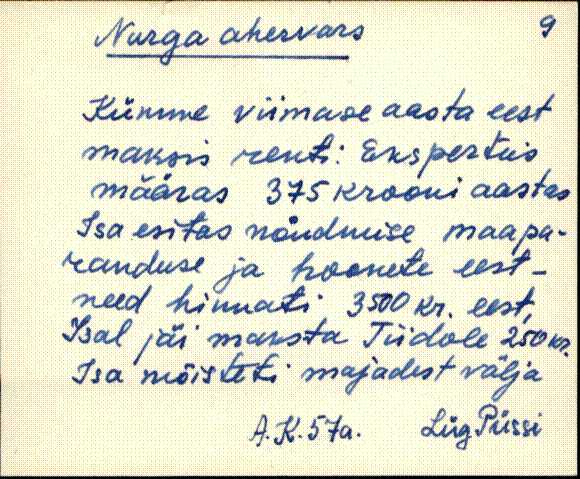 Nurga ahervars 9
Kümme viimase aasta eest
maksis renti: Ekspertiis
määras 375 krooni aastas
Isa esitas nõudmise maapa-
randuse ja hoonete eest –
need hinnati 3500 kr. eest,
Isal jäi maksta Tiidole 250 kr.
Isa mõisteti majadest välja
A.K. 57a. Lüg Püssi